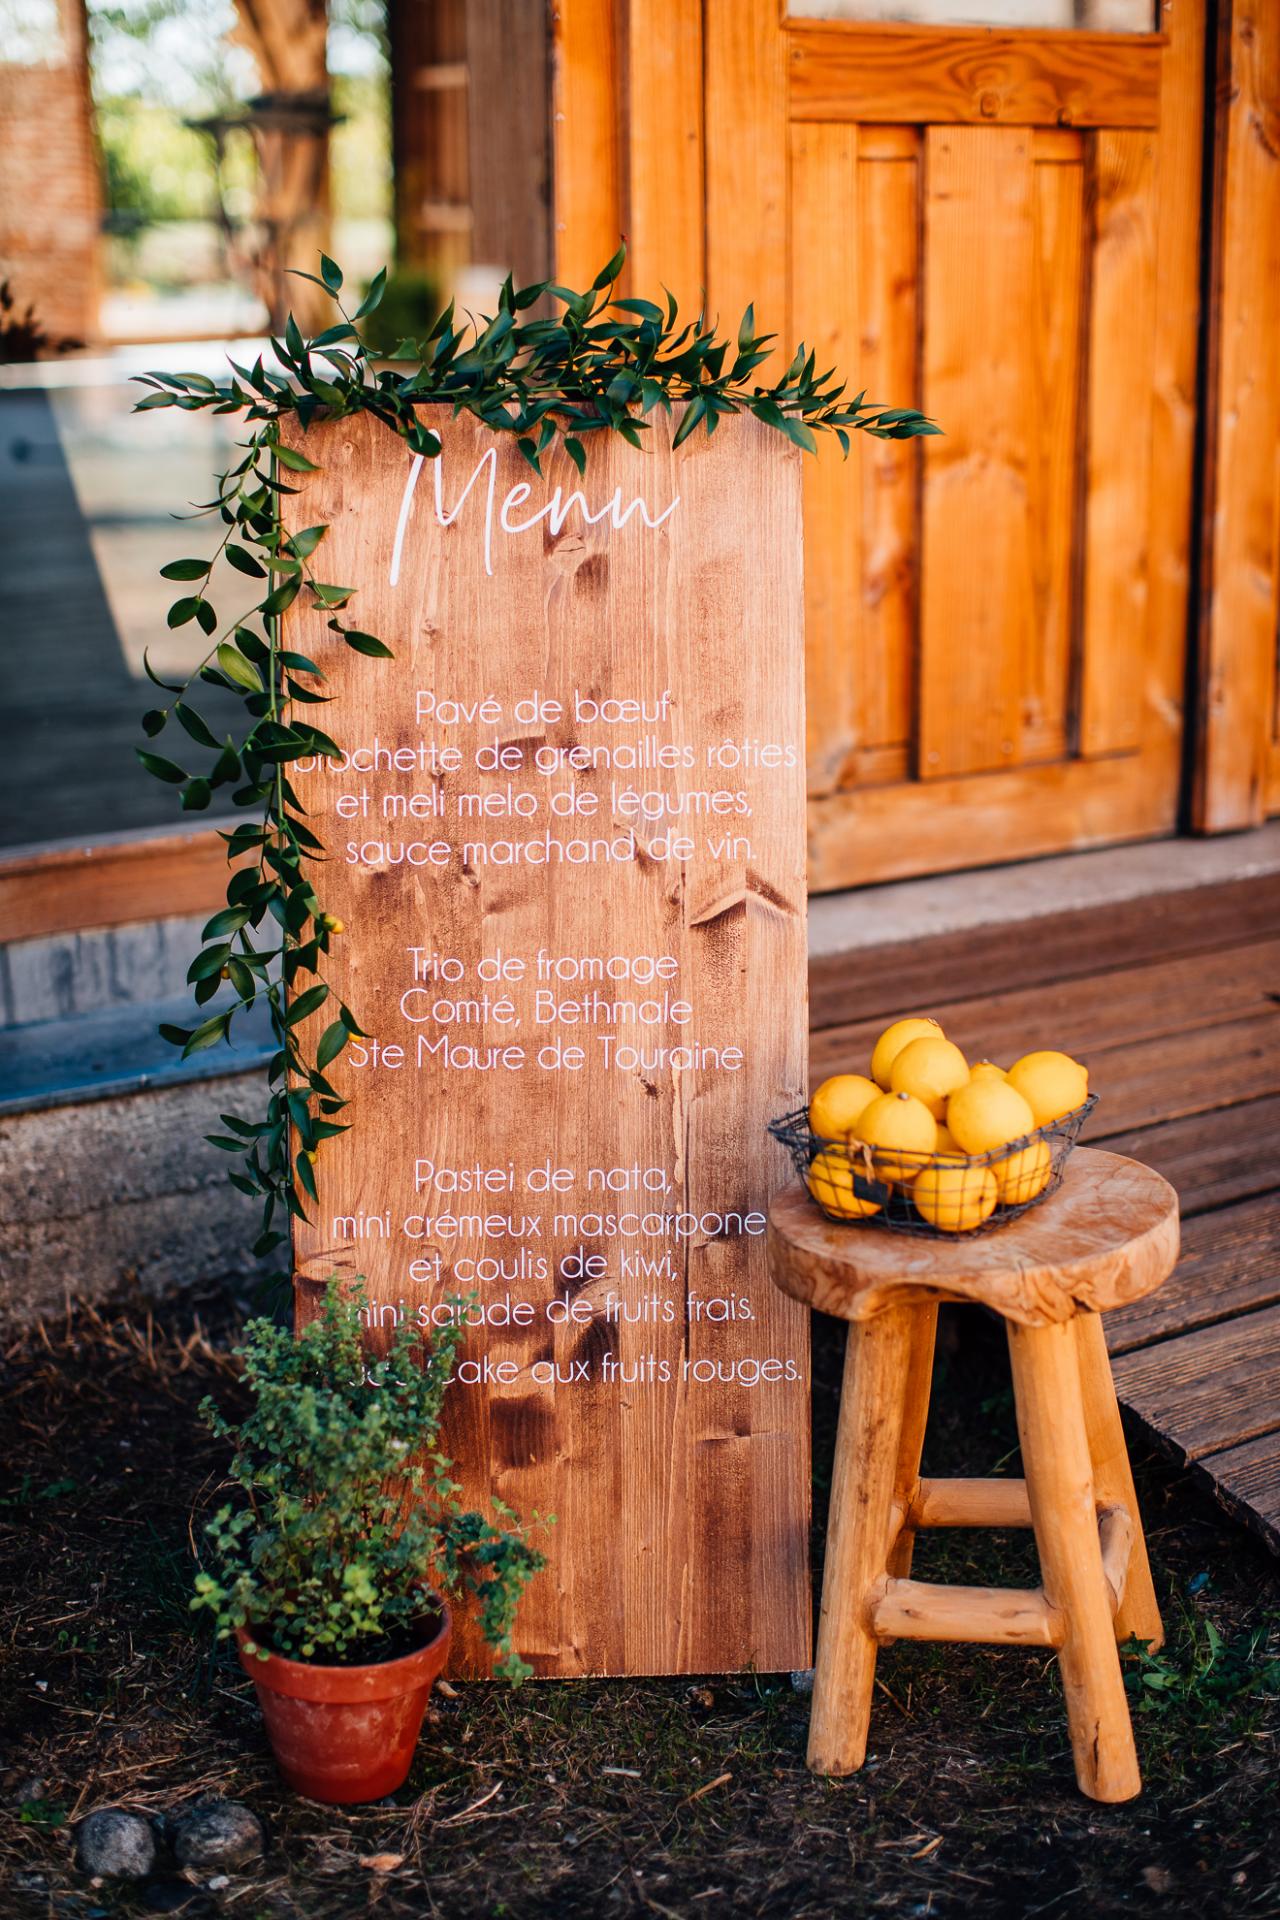 Menu
Pavé de bœuf
brochette de grenailles rôties
et meli melo de légumes,
sauce marchand de vin.
Trio de fromage
Comté, Bethmale
Ste Maure de Touraine
Pastei de nata,
mini crémeux mascarpone
et coulis de kiwi,
mini salade de fruits frais.
Cake aux fruits rouges.